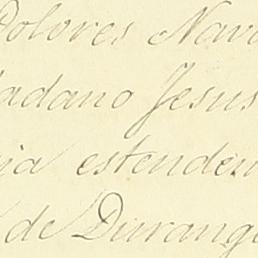 Dolores Nava
dadano Jesus
ia estenden
de Durango